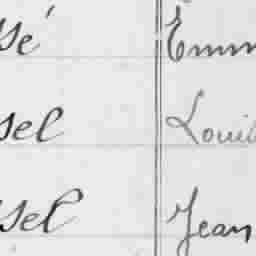 sé Emm
sel Loui
sel Jean